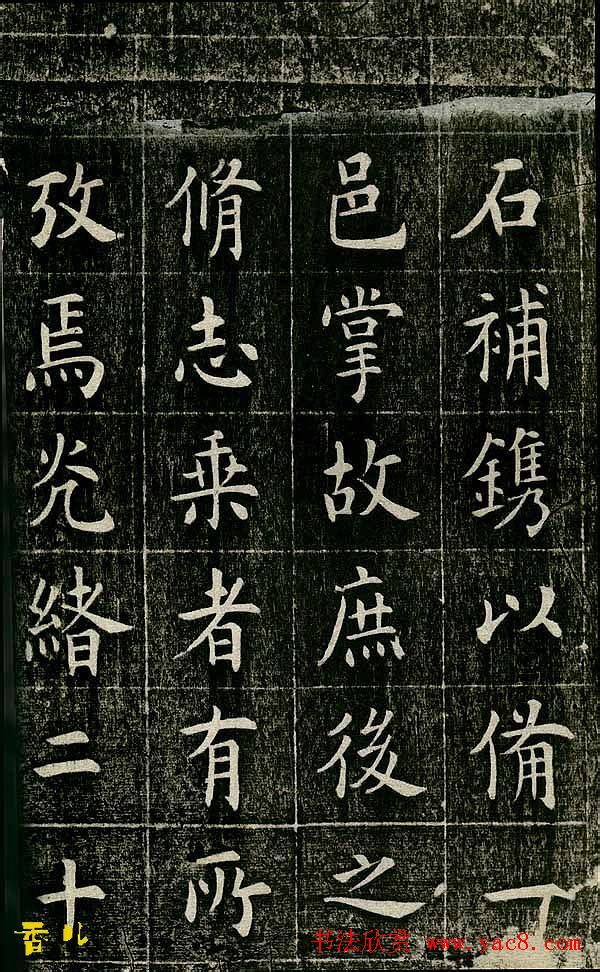 石補鐫以備一
邑掌故庶後之
脩志乗者有所
攷焉光緒二十
香儿
书法欣赏 www.yac8.com